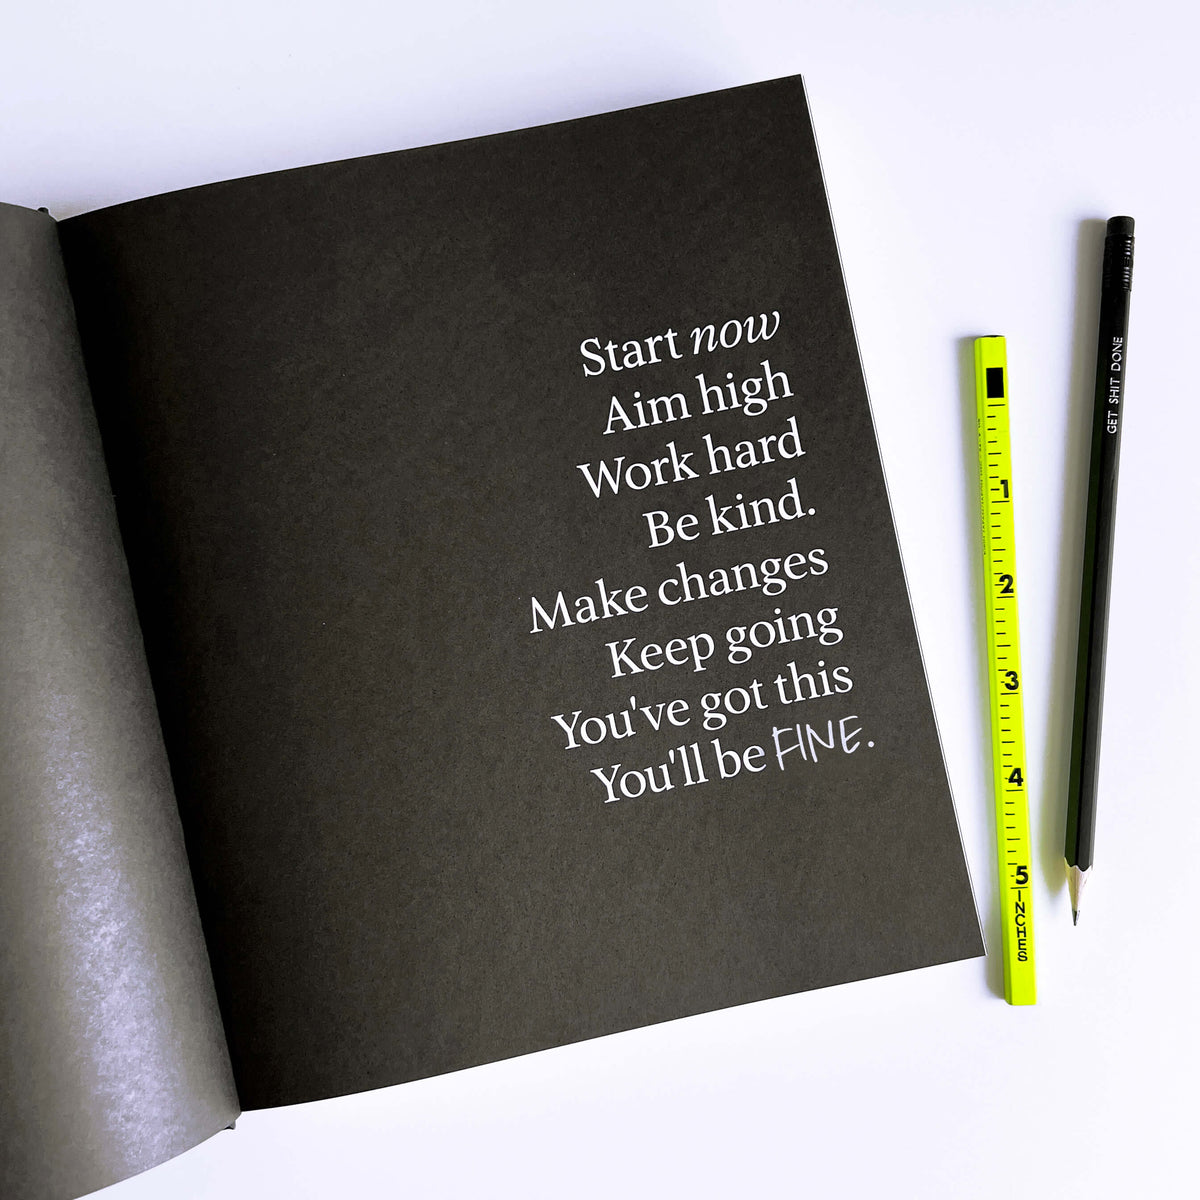 Start now
Aim high
Work hard
Be kind.
Make changes
Keep going
You've got this
You'll be FINE.
1
2
3
4
5
INCHES
GET SHIT DONE